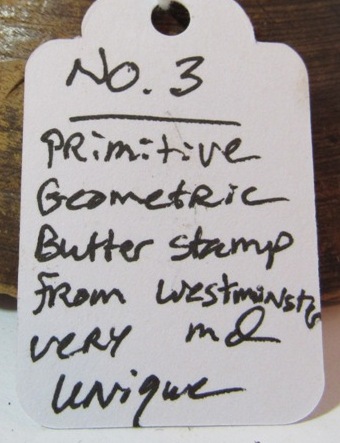 No. 3
Primitive
Geometric
Butter stamp
From Westminster
very md
unique